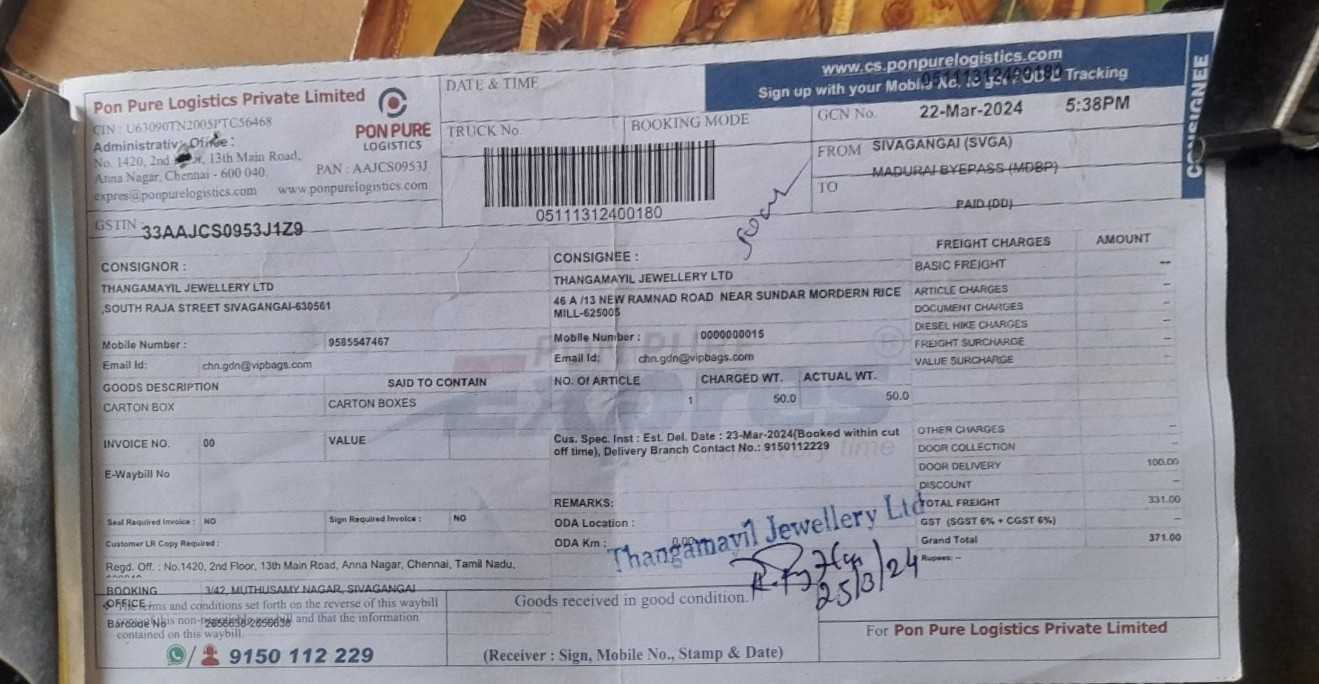 Pon Pure Logistics Private Limited
CIN : U63090TN2005PTC56468
Administrativ Office :
No. 1420, 2nd r, 13th Main Road,
Anna Nagar, Chennai - 600 040.
PAN : AAJCS0953J
expres@ponpurelogistics.com www.ponpurelogistics.com
PON PURE
LOGISTICS
GSTIN : 33AAJCS0953J1Z9
DATE & TIME
TRUCK No.
BOOKING MODE
05111312400180
www.cs.ponpurelogistics.com
Sign up with your Mobil Tracking
05111312400180
GCN No. 22-Mar-2024 5:38PM
FROM SIVAGANGAI (SVGA)
TO MADURAI BYEPASS (MDBP)
PAID (DD)
CONSIGNEE
CONSIGNOR :
THANGAMAYIL JEWELLERY LTD
,SOUTH RAJA STREET SIVAGANGAI-630561
Mobile Number : 9585547467
Email Id: chn.gdn@vipbags.com
CONSIGNEE :
THANGAMAYIL JEWELLERY LTD
46 A /13 NEW RAMNAD ROAD NEAR SUNDAR MORDERN RICE
MILL-625005
Mobile Number : 0000000015
Email Id: chn.gdn@vipbags.com
GOODS DESCRIPTION SAID TO CONTAIN NO. Of ARTICLE CHARGED WT. ACTUAL WT.
CARTON BOX CARTON BOXES 1 50.0 50.0
INVOICE NO. 00 VALUE
E-Waybill No
Cus. Spec. Inst : Est. Del. Date : 23-Mar-2024(Booked within cut
off time), Delivery Branch Contact No.: 9150112229
REMARKS:
Seal Required Invoice : NO Sign Required Invoice : NO
ODA Location :
Customer LR Copy Required :
ODA Km : 0.00
FREIGHT CHARGES AMOUNT
BASIC FREIGHT --
ARTICLE CHARGES -
DOCUMENT CHARGES -
DIESEL HIKE CHARGES -
FREIGHT SURCHARGE -
VALUE SURCHARGE -
OTHER CHARGES -
DOOR COLLECTION -
DOOR DELIVERY 100.00
DISCOUNT -
TOTAL FREIGHT 331.00
GST (SGST 6% + CGST 6%) -
Grand Total 371.00
Rupees: --
Thangamayil Jewellery Ltd
25/3/24
Regd. Off. : No.1420, 2nd Floor, 13th Main Road, Anna Nagar, Chennai, Tamil Nadu,
BOOKING OFFICE 3/42, MUTHUSAMY NAGAR, SIVAGANGAI
terms and conditions set forth on the reverse of this waybill
Barcode No 2656638-2656638
and that the information
contained on this waybill.
9150 112 229
Goods received in good condition.
(Receiver : Sign, Mobile No., Stamp & Date)
For Pon Pure Logistics Private Limited